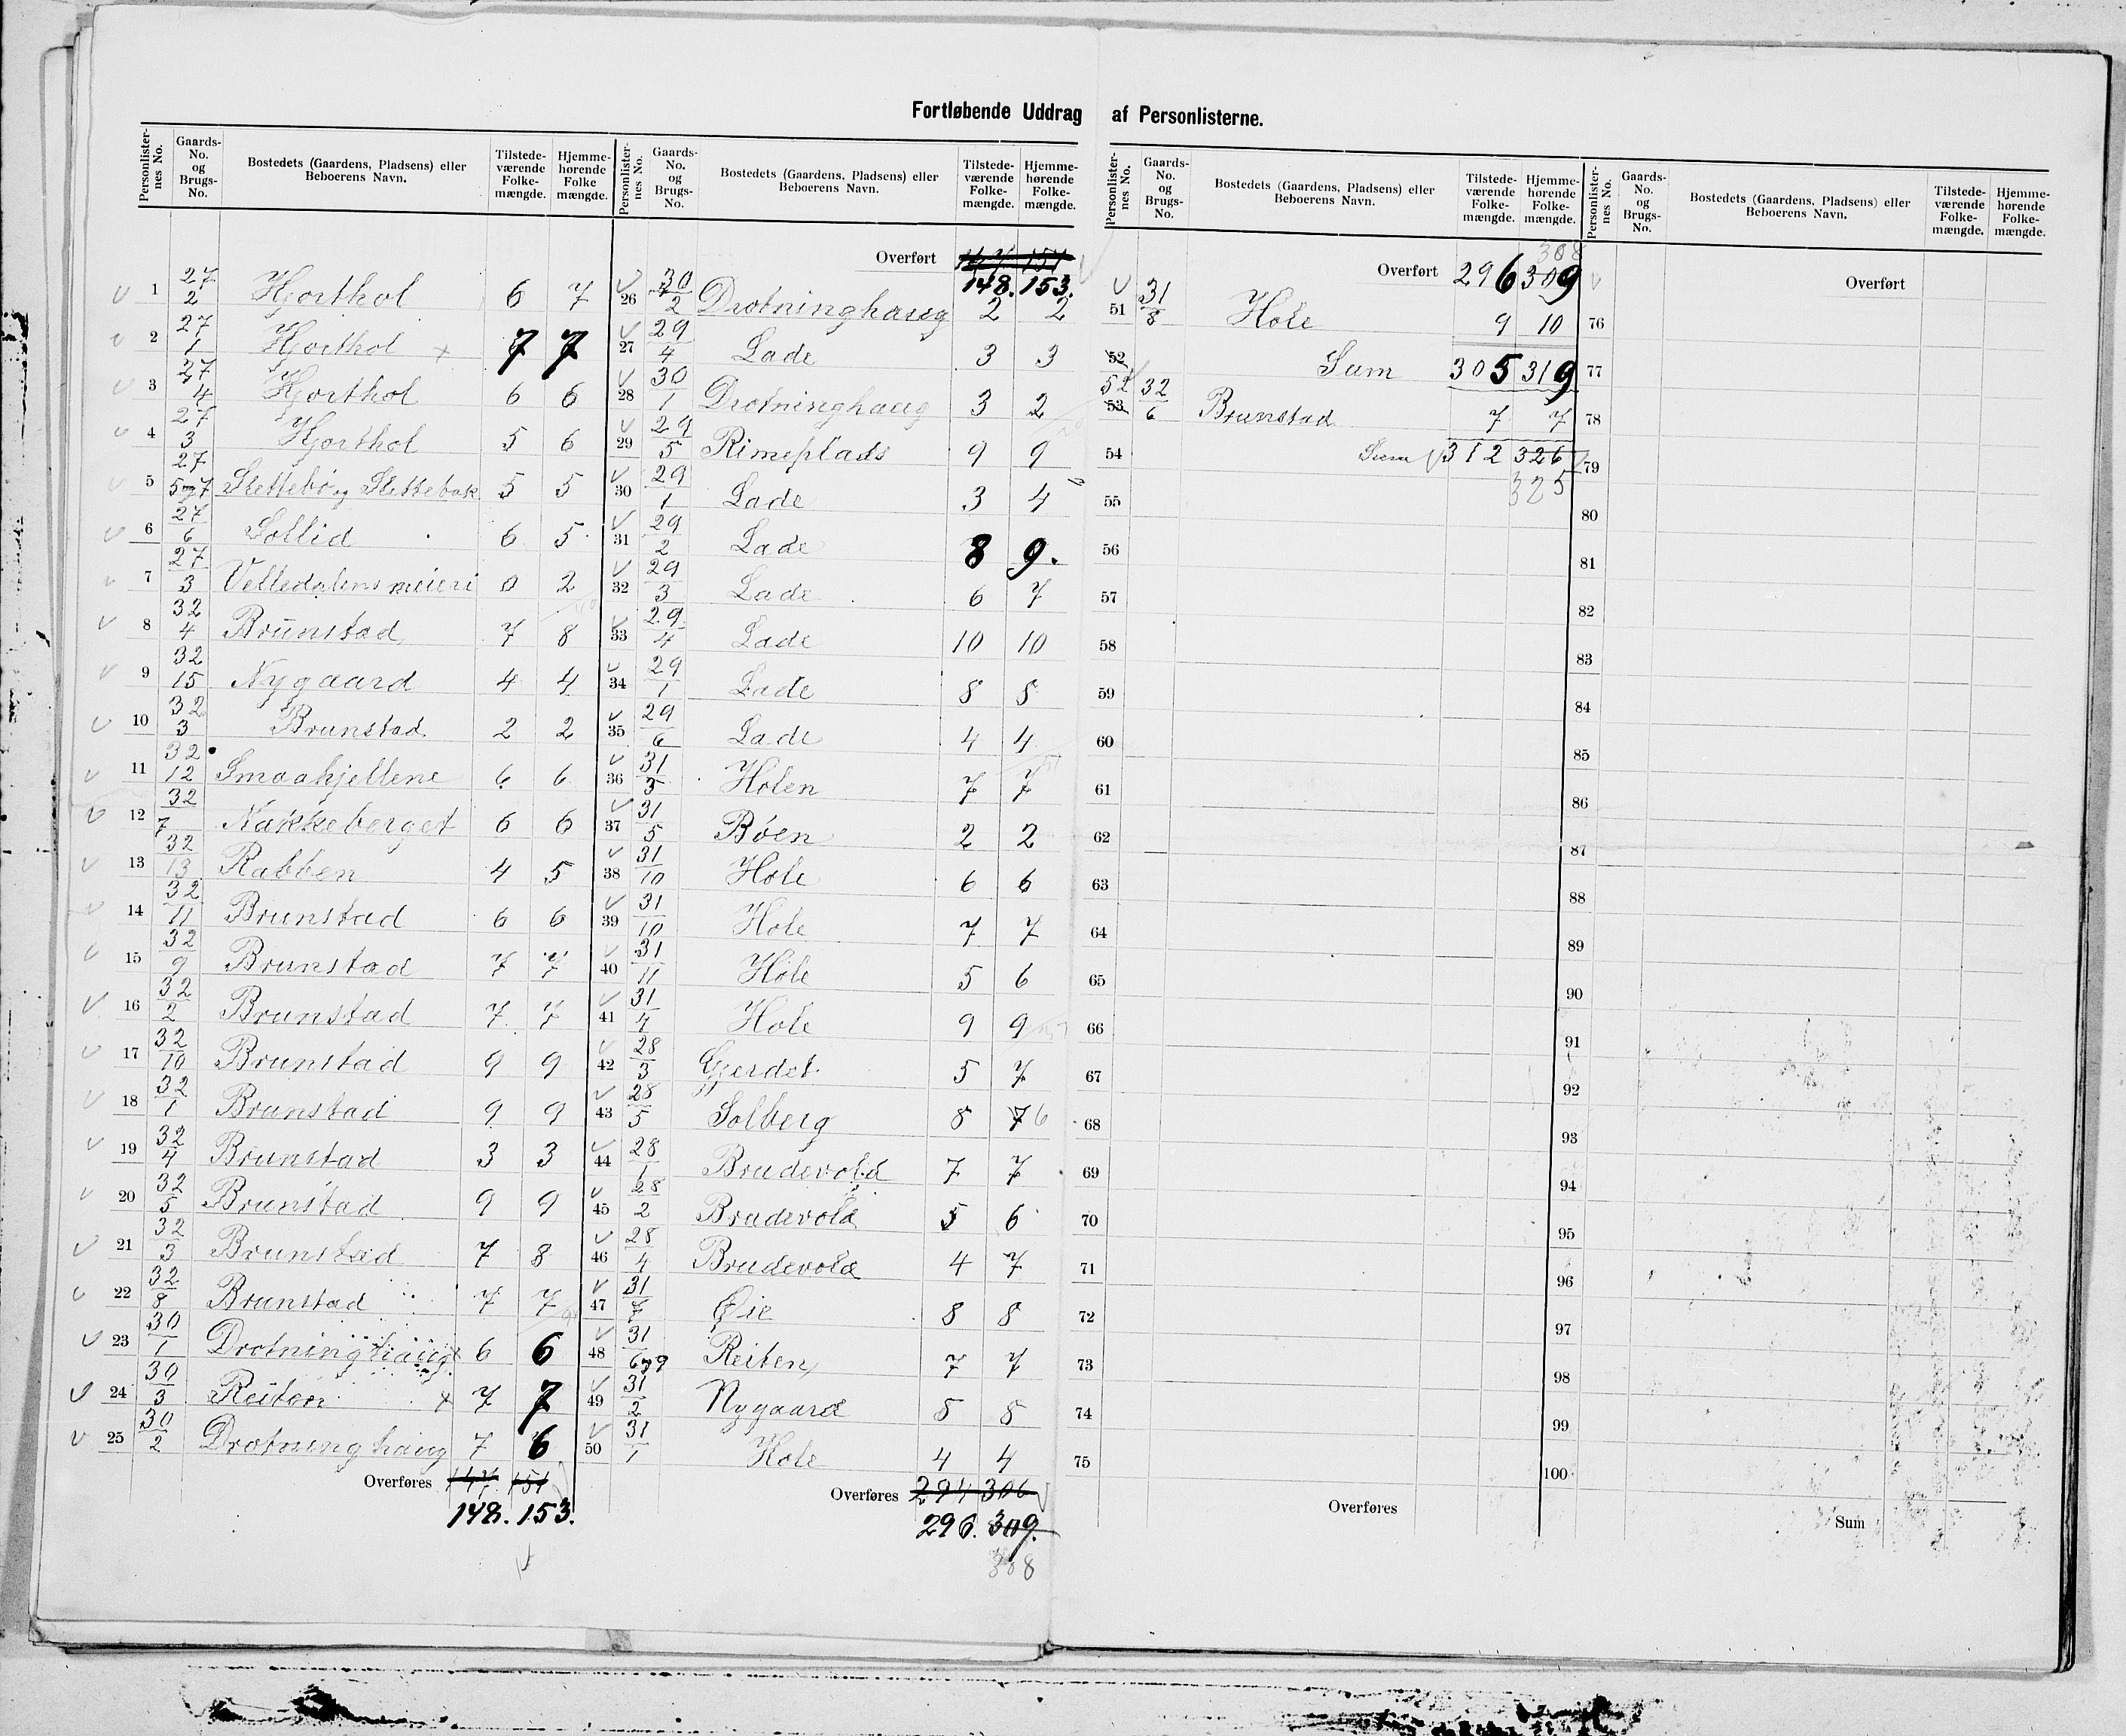 Fortløbende Uddrag af Personlisterne.
Personlisternes No. Gaards-No. og Brugs-No. Bostedets (Gaardens, Pladsens) eller Beboerens Navn. Tilstedeværende Folkemængde. Hjemmehørende Folkemængde.
1 27/2 Hjorthol 6 7
2 27/1 Hjorthol x 7 7
3 27/4 Hjorthol 6 6
4 27/3 Hjorthol 5 6
5 27/5 og 7 Slettebø og Slettebak 5 5
6 27/6 Sollid 6 5
7 27/3 Velledalens meieri 0 2
8 32/4 Brunstad 7 8
9 32/15 Nygaard 4 4
10 32/3 Brunstad 2 2
11 32/12 Smaahjellene 6 6
12 32/7 Nakkeberget 6 6
13 32/13 Rabben 4 5
14 32/11 Brunstad 6 6
15 32/9 Brunstad 7 7
16 32/2 Brunstad 7 7
17 32/10 Brunstad 9 9
18 32/1 Brunstad 9 9
19 32/4 Brunstad 3 3
20 32/5 Brunstad 9 9
21 32/3 Brunstad 7 8
22 32/8 Brunstad 7 7
23 30/1 Drotninghaug x 6 6
24 30/3 Reiten x 7 7
25 30/2 Drotninghaug 7 6
Overføres 147 151
148. 153.
Personlisternes No. Gaards-No. og Brugs-No. Bostedets (Gaardens, Pladsens) eller Beboerens Navn. Tilstedeværende Folkemængde. Hjemmehørende Folkemængde.
Overført 147 151
148. 153.
26 30/2 Drotninghaug 2 2
27 29/4 Lade 3 3
28 30/1 Drotninghaug 3 2
29 29/5 Rimeplads 9 9
30 29/1 Lade 3 4
31 29/2 Lade 8 9.
32 29/3 Lade 6 7
33 29/4 Lade 10 10
34 29/1 Lade 8 8
35 29/6 Lade 4 4
36 31/3 Holen 7 7
37 31/5 Bøen 2 2
38 31/10 Hole 6 6
39 31/10 Hole 7 7
40 31/11 Hole 5 6
41 31/4 Hole 9 9
42 28/3 Gjerdet 5 7
43 28/5 Solberg 8 7 6
44 28/1 Brudevold 7 7
45 28/2 Brudevold 5 6
46 28/4 Brudevold 4 7
47 31/7 Øie 8 8
48 31/6 og 9 Reiten 7 7
49 31/2 Nygaard 8 8
50 31/1 Hole 4 4
Overføres 294 306
296. 309.
308
Personlisternes No. Gaards-No. og Brugs-No. Bostedets (Gaardens, Pladsens) eller Beboerens Navn. Tilstedeværende Folkemængde. Hjemmehørende Folkemængde.
308
Overført 296 309
51 31/8 Hole 9 10
52 Sum 305 319
52 53 32/6 Brunstad 7 7
54 Sum 312 326
55 325
56
57
58
59
60
61
62
63
64
65
66
67
68
69
70
71
72
73
74
75
Overføres
Personlisternes No. Gaards-No. og Brugs-No. Bostedets (Gaardens, Pladsens) eller Beboerens Navn. Tilstedeværende Folkemængde. Hjemmehørende Folkemængde.
Overført
76
77
78
79
80
81
82
83
84
85
86
87
88
89
90
91
92
93
94
95
96
97
98
99
100
Sum